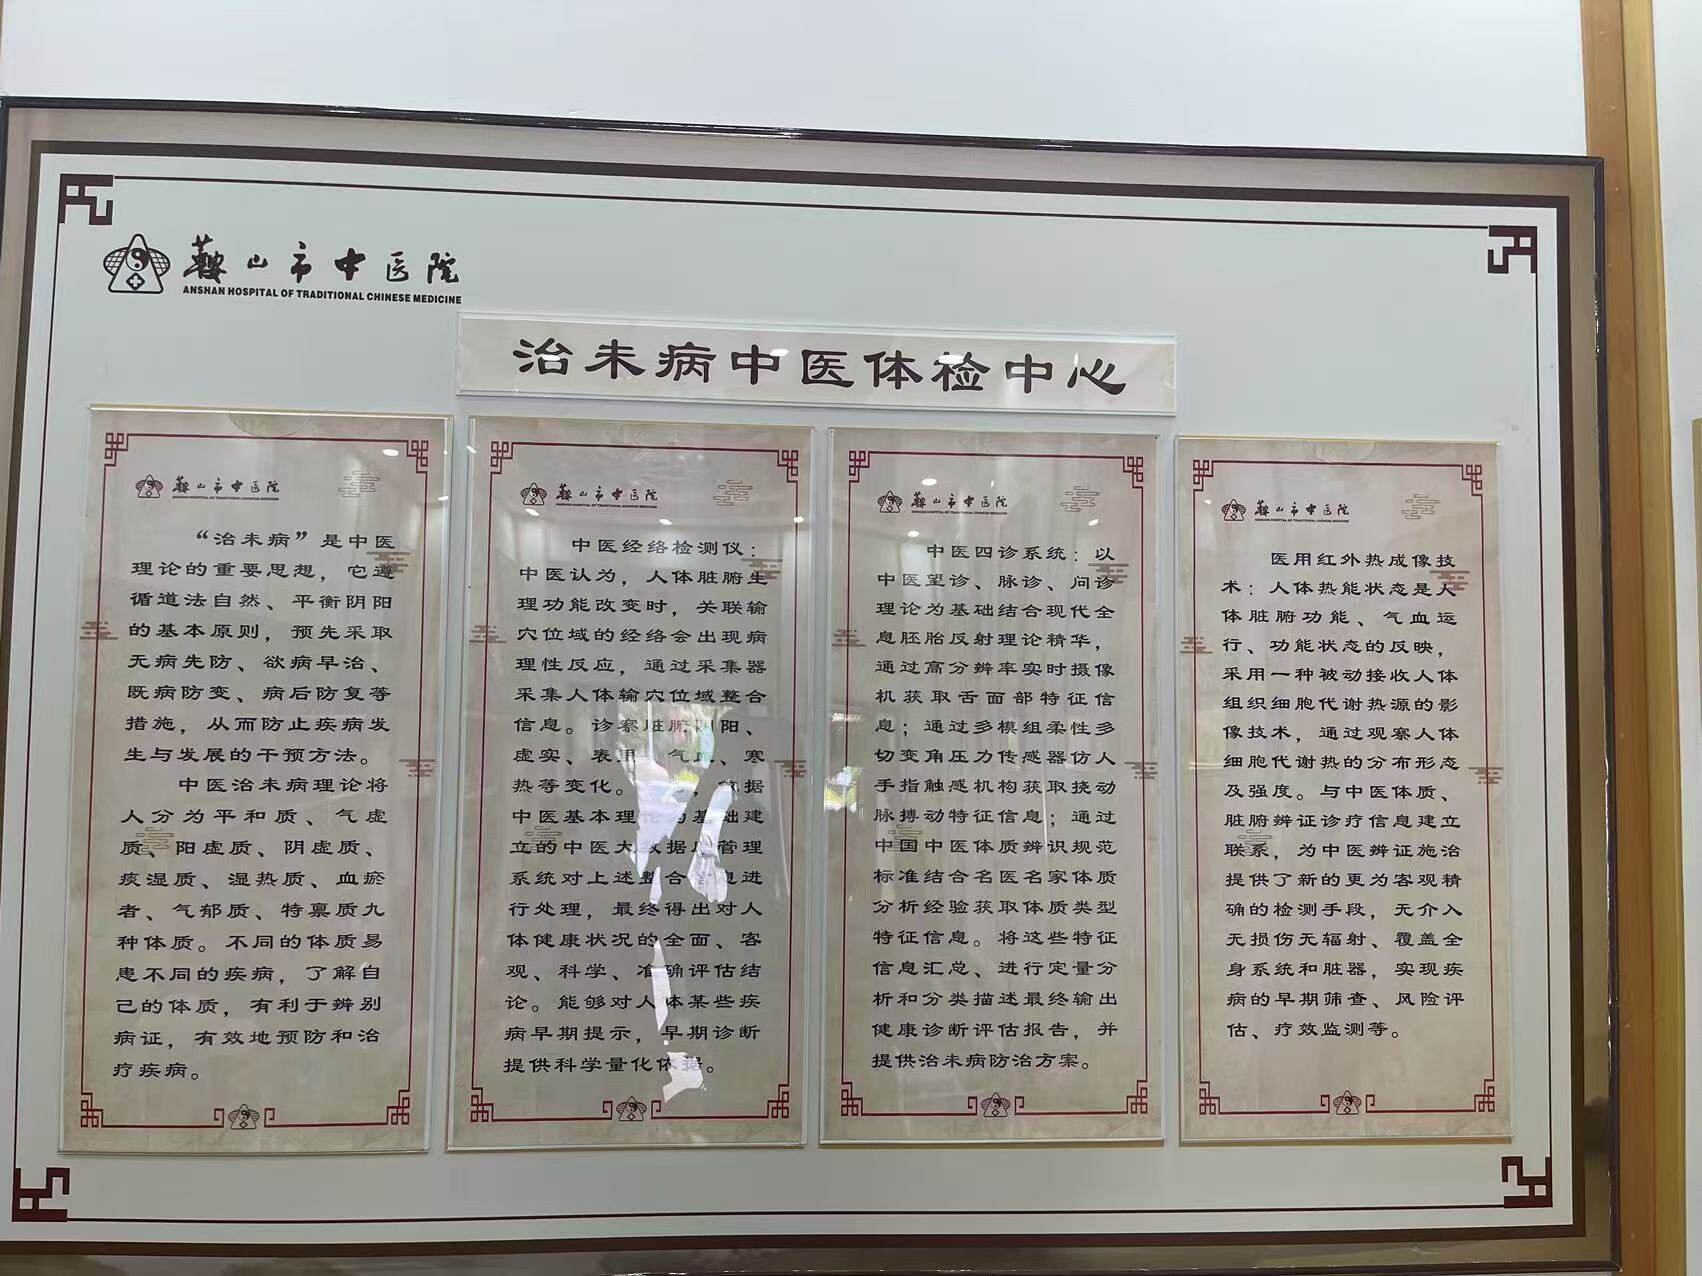 鞍山市中医院
ANSHAN HOSPITAL OF TRADITIONAL CHINESE MEDICINE
治未病中医体检中心
鞍山市中医院
ANSHAN HOSPITAL OF TRADITIONAL CHINESE MEDICINE
“治未病”是中医
理论的重要思想，它遵
循道法自然、平衡阴阳
的基本原则，预先采取
无病先防、欲病早治、
既病防变、病后防复等
措施，从而防止疾病发
生与发展的干预方法。
中医治未病理论将
人分为平和质、气虚
质、阳虚质、阴虚质、
痰湿质、湿热质、血瘀
者、气郁质、特禀质九
种体质。不同的体质易
患不同的疾病，了解自
己的体质，有利于辨别
病证，有效地预防和治
疗疾病。
鞍山市中医院
ANSHAN HOSPITAL OF TRADITIONAL CHINESE MEDICINE
中医经络检测仪：
中医认为，人体脏腑生
理功能改变时，关联输
穴位域的经络会出现病
理性反应，通过采集器
采集人体输穴位域整合
信息。诊察脏腑阴阳、
虚实、表里、气血、寒
热等变化。，依据
中医基本理论为基础建
立的中医大数据库管理
系统对上述整合信息进
行处理，最终得出对人
体健康状况的全面、客
观、科学、准确评估结
论。能够对人体某些疾
病早期提示，早期诊断
提供科学量化依据。
鞍山市中医院
ANSHAN HOSPITAL OF TRADITIONAL CHINESE MEDICINE
中医四诊系统：以
中医望诊、脉诊、问诊
理论为基础结合现代全
息胚胎反射理论精华，
通过高分辨率实时摄像
机获取舌面部特征信
息；通过多模组柔性多
切变角压力传感器仿人
手指触感机构获取挠动
脉搏动特征信息；通过
中国中医体质辨识规范
标准结合名医名家体质
分析经验获取体质类型
特征信息。将这些特征
信息汇总、进行定量分
析和分类描述最终输出
健康诊断评估报告，并
提供治未病防治方案。
鞍山市中医院
ANSHAN HOSPITAL OF TRADITIONAL CHINESE MEDICINE
医用红外热成像技
术：人体热能状态是人
体脏腑功能、气血运
行、功能状态的反映，
采用一种被动接收人体
组织细胞代谢热源的影
像技术，通过观察人体
细胞代谢热的分布形态
及强度。与中医体质、
脏腑辨证诊疗信息建立
联系，为中医辨证施治
提供了新的更为客观精
确的检测手段，无介入
无损伤无辐射、覆盖全
身系统和脏器，实现疾
病的早期筛查、风险评
估、疗效监测等。